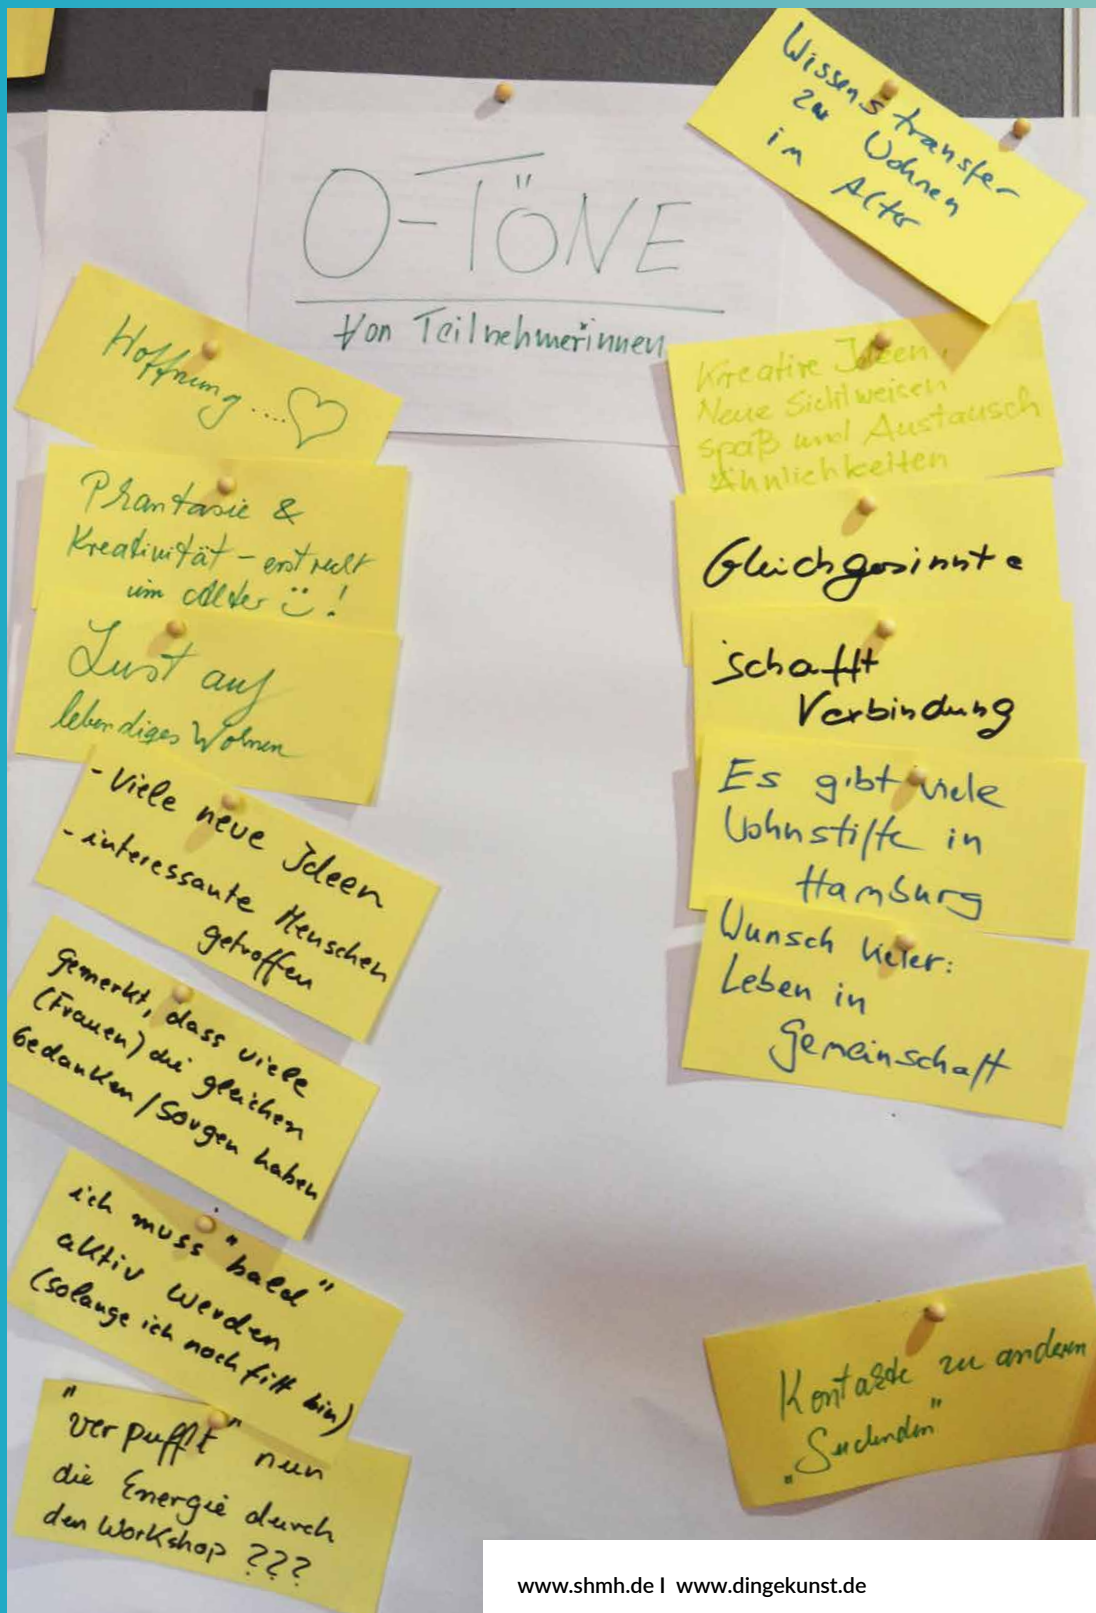 O-TÖNE
Von Teilnehmerinnen
Hoffnung....
Phantasie &
Kreativität - erst recht
im Alter !
Lust auf
lebendiges Wohnen
- Viele neue Ideen
- interessante Menschen
getroffen
gemerkt, dass viele
(Frauen) die gleichen
Gedanken/Sorgen haben
ich muss "bald"
aktiv werden
(solange ich noch fitt bin)
"verpufft" nun
die Energie durch
den Workshop ???
Wissenstransfer
zu Wohnen
im Alter
Kreative Ideen,
Neue Sichtweisen
Spaß und Austausch
Ähnlichkeiten
Gleichgesinnte
schafft
Verbindung
Es gibt viele
Wohnstifte in
Hamburg
Wunsch vieler:
Leben in
Gemeinschaft
Kontakte zu anderen
"Suchenden"
www.shmh.de I www.dingekunst.de